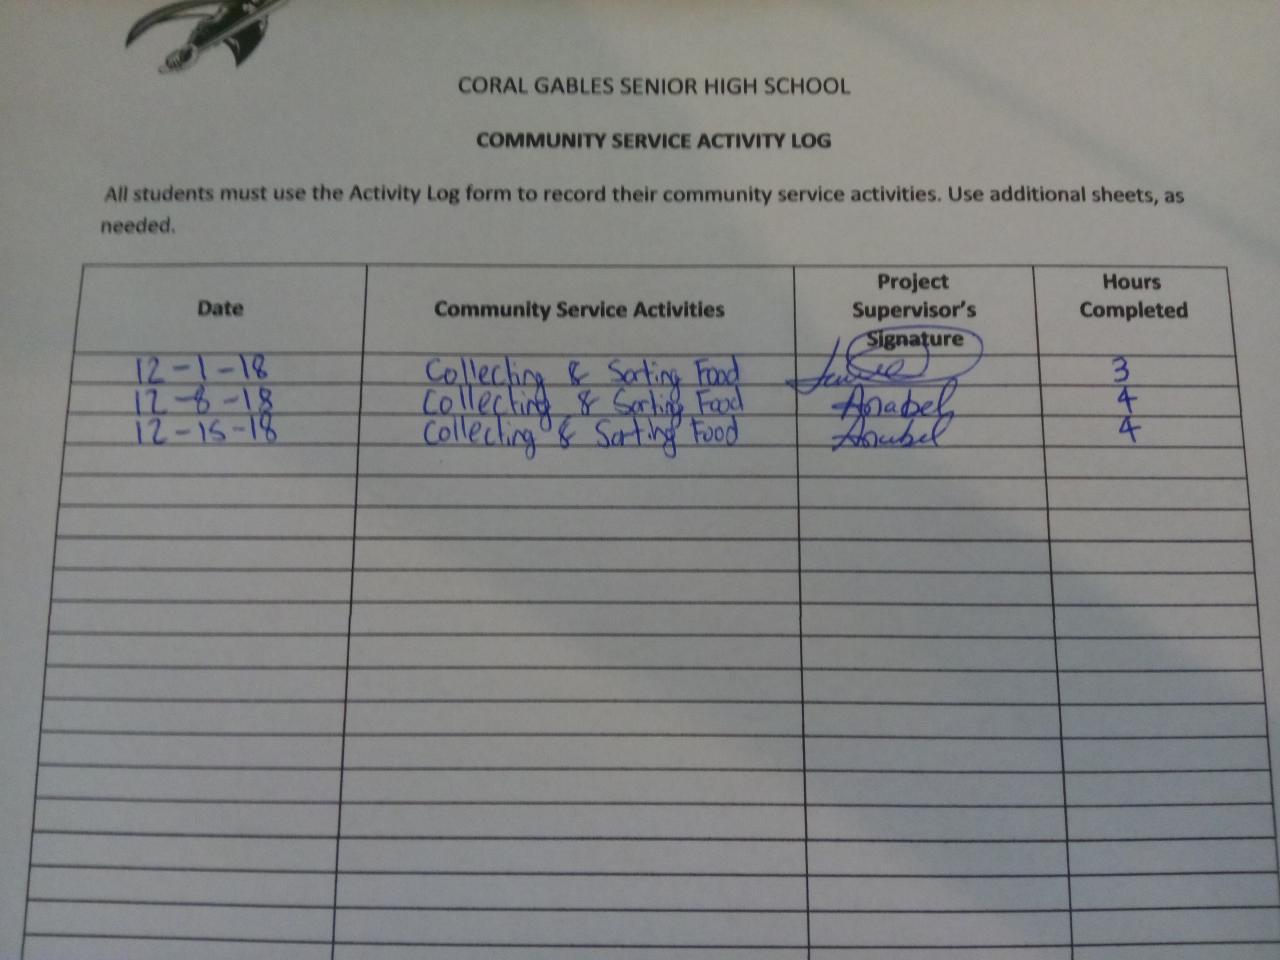 CORAL GABLES SENIOR HIGH SCHOOL
COMMUNITY SERVICE ACTIVITY LOG
All students must use the Activity Log form to record their community service activities. Use additional sheets, as
needed.
Date Community Service Activities Project Supervisor's Signature Hours Completed
12-1-18 Collecting & Sorting Food 3
12-8-18 Collecting & Sorting Food Anabel 4
12-15-18 Collecting & Sorting Food Anabel 4